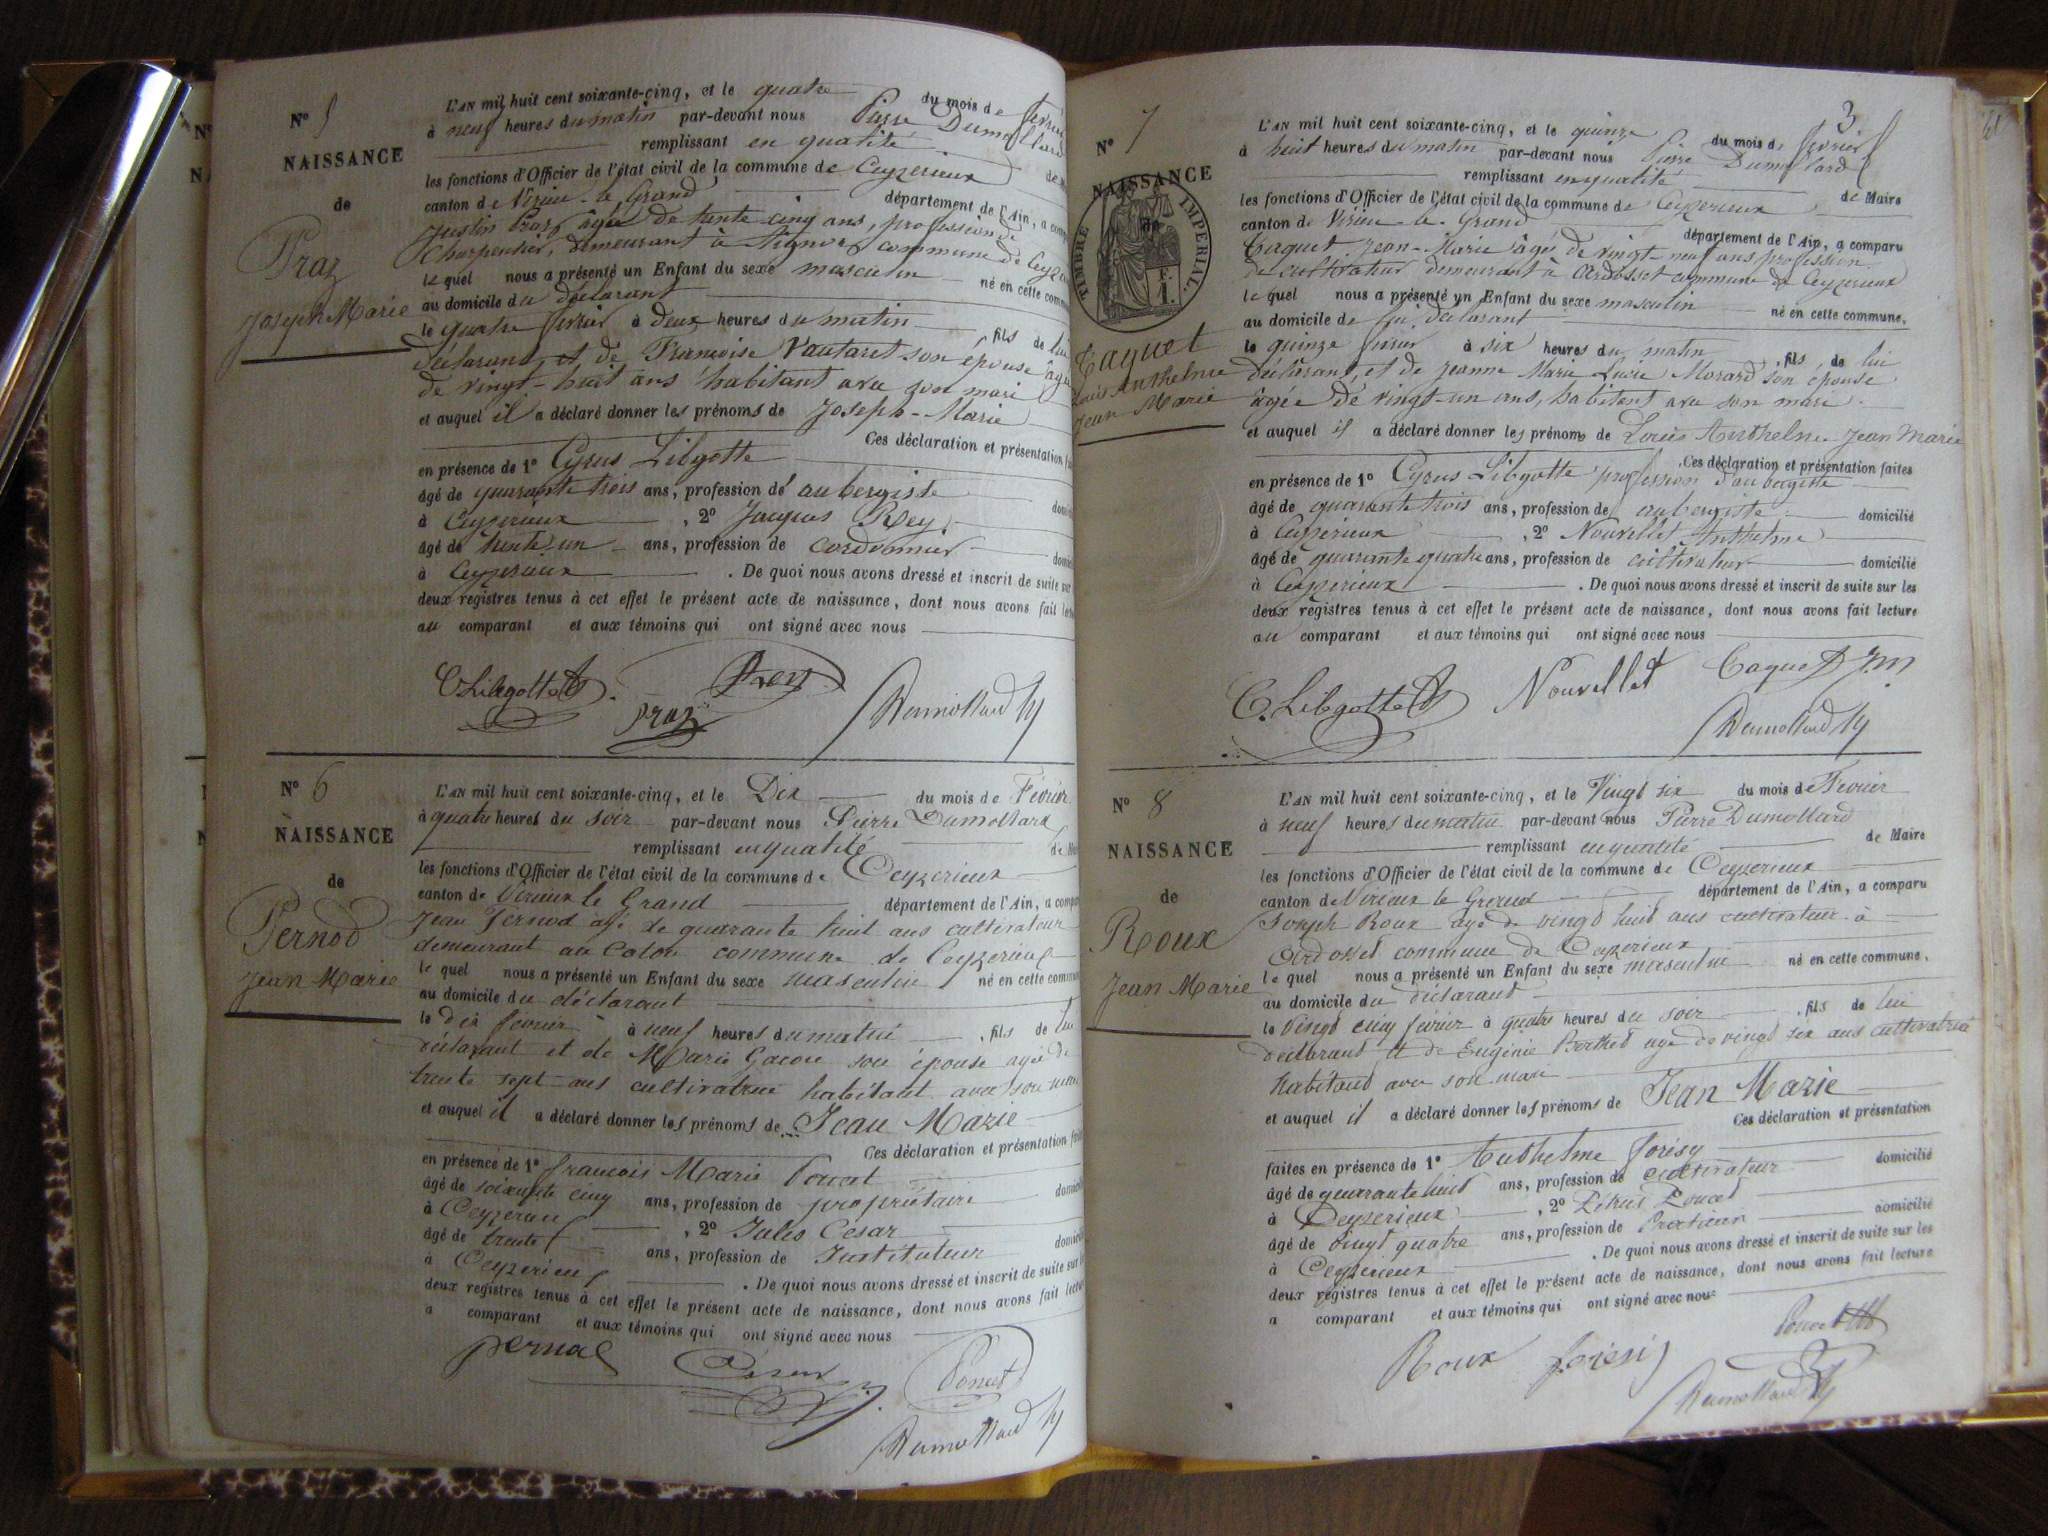 N° 5
NAISSANCE
de
Praz
Joseph Marie
L'AN mil huit cent soixante-cinq, et le quatre du mois de février
à neuf heures du matin par-devant nous Pierre Dumollard
remplissant en qualité de
les fonctions d'Officier de l'état civil de la commune de Ceyzerieux
canton de Virieu-le-Grand département de l'Ain, a comp
Justin Praz âgé de trente-cinq ans, profession de
charpentier, demeurant à Aignoz commune de Ceyze
le quel nous a présenté un Enfant du sexe masculin né en cette comm
au domicile du déclarant
le quatre février à deux heures du matin, fils de lui
déclarant, et de Françoise Vautaret son épouse âgée
de vingt-huit ans habitant avec son mari
et auquel il a déclaré donner les prénoms de Joseph-Marie
Ces déclaration et présentation fai
en présence de 1° Cyrus Libgotte
âgé de quarante trois ans, profession de aubergiste
à Ceyzerieux, 2° Jacques Rey
âgé de trente-un ans, profession de cordonnier
à Ceyzerieux. De quoi nous avons dressé et inscrit de suite sur
deux registres tenus à cet effet le présent acte de naissance, dont nous avons fait lectu
au comparant et aux témoins qui ont signé avec nous
C. Libgotte Rey
Praz Dumollard
N° 6
NAISSANCE
de
Pernod
Jean Marie
L'AN mil huit cent soixante-cinq, et le Dix du mois de Février
à quatre heures du soir par-devant nous Pierre Dumollard
remplissant en qualité
les fonctions d'Officier de l'état civil de la commune de Ceyzerieux
canton de Virieux le Grand département de l'Ain, a compa
Jean Pernod âgé de quarante huit ans cultivateur
demeurant au commune de Ceyzerieux
le quel nous a présenté un Enfant du sexe masculin né en cette commun
au domicile du déclarant
le dix février à neuf heures du matin, fils de lui
déclarant et de Marie son épouse agée de
trente sept ans cultivatrice habitant avec son mari
et auquel il a déclaré donner les prénoms de Jean Marie
Ces déclaration et présentation fait
en présence de 1° francois Marie Poncet
âgé de soixante cinq ans, profession de propriétaire
à Ceyzerieu, 2° Jules César
âgé de trente ans, profession de Instituteur
à Ceyzerieux. De quoi nous avons dressé et inscrit de suite sur
deux registres tenus à cet effet le présent acte de naissance, dont nous avons fait lectur
a comparant et aux témoins qui ont signé avec nous
pernod César Poncet
Dumollard
3
N° 7
NAISSANCE
de
TIMBRE IMPERIAL.
Caquet
Louis Anthelme
Jean Marie
L'AN mil huit cent soixante-cinq, et le quinze du mois de février
à huit heures du matin par-devant nous Pierre Dumollard
remplissant en qualité de Maire
les fonctions d'Officier de l'état civil de la commune de Ceyzerieux
canton de Virieu-le-Grand département de l'Ain, a comparu
Caquet Jean-Marie âgé de vingt-neuf ans profession
de cultivateur demeurant à Ardosset commune de Ceyzerieux
le quel nous a présenté un Enfant du sexe masculin né en cette commune,
au domicile de lui déclarant
le quinze février à six heures du matin, fils de lui
déclarant, et de Jeanne Marie Lucie Morard son épouse
âgée de vingt-un ans, habitant avec son mari.
et auquel il a déclaré donner les prénoms de Louis Anthelme Jean Marie
Ces déclaration et présentation faites
en présence de 1° Cyrus Libgotte profession d'aubergiste
âgé de quarante trois ans, profession de aubergiste domicilié
à Ceyzerieux, 2° Nouvellet Anthelme
âgé de quarante quatre ans, profession de cultivateur domicilié
à Ceyzerieux. De quoi nous avons dressé et inscrit de suite sur les
deux registres tenus à cet effet le présent acte de naissance, dont nous avons fait lecture
au comparant et aux témoins qui ont signé avec nous
C. Libgotte Nouvellet Caquet J.M
Dumollard
N° 8
NAISSANCE
de
Roux
Jean Marie
L'AN mil huit cent soixante-cinq, et le Vingt six du mois de Février
à neuf heures du matin par-devant nous Pierre Dumollard
remplissant en qualité de Maire
les fonctions d'Officier de l'état civil de la commune de Ceyzerieux
canton de Virieux le Grand département de l'Ain, a comparu
Joseph Roux agé de vingt huit ans cultivateur à
Ardosset commune de Ceyzerieux
le quel nous a présenté un Enfant du sexe masculin né en cette commune,
au domicile du déclarant
le Vingt cinq février à quatre heures du soir, fils de lui
déclarant et de Eugénie Berthet agé de vingt six ans cultivatrice
habitant avec son mari
et auquel il a déclaré donner les prénoms de Jean Marie
Ces déclaration et présentation
faites en présence de 1° Anthelme forésy
âgé de quarante huit ans, profession de cultivateur domicilié
à Ceyzerieux, 2° Poncet
âgé de vingt quatre ans, profession de Praticien domicilié
à Ceyzerieux. De quoi nous avons dressé et inscrit de suite sur les
deux registres tenus à cet effet le présent acte de naissance, dont nous avons fait lecture
a comparant et aux témoins qui ont signé avec nous
Roux forési Poncet
Dumollard